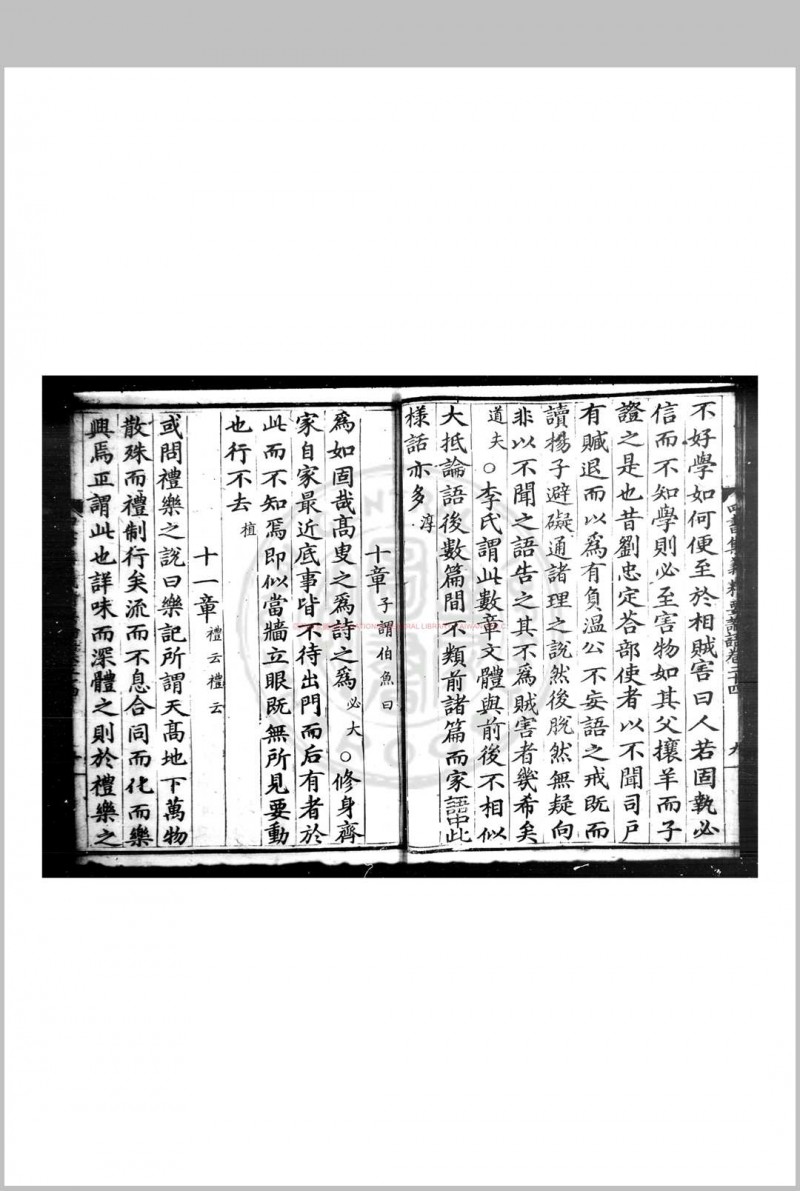 不好學如何便至於相賊害曰人若固執必
信而不知學則必至害物如其父攘羊而子
證之是也昔劉忠定荅部使者以不聞司戶
有贓退而以為有負溫公不妄語之戒既而
讀揚子避礙通諸理之說然後脫然無疑向
非以不聞之語告之其不為賊害者幾希矣
道夫○李氏謂此數章文體與前後不相似
大抵論語後數篇間不類前諸篇而家語中此
樣話亦多淳
十章子謂伯魚曰
為如固哉高叟之為詩之為必大○修身齊
家自家最近底事皆不待出門而后有者於
此而不知焉即似當牆立眼既無所見要動
也行不去植
十一章禮云禮云
或問禮樂之說曰樂記所謂天高地下萬物
散殊而禮制行矣流而不息合同而化而樂
興焉正謂此也詳味而深體之則於禮樂之